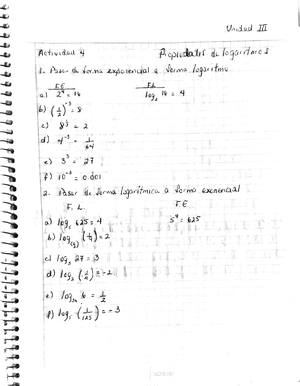 Unidad III
Actividad 4 Propiedades de logaritmos
1. Pasar de forma exponencial a forma logaritmo
F.E. F.L.
a) 2⁴ = 16 log₂ 16 = 4
b) (1/2)⁻³ = 8
c) 8^(1/3) = 2
d) 4⁻³ = 1/64
e) 3³ = 27
f) 10⁻³ = 0.001
2. Pasar de forma logarítmica a forma exponencial
F. L. F.E.
a) log₅ 625 = 4 5⁴ = 625
b) log (1/4) = 2
c) log₃ 27 = 3
d) log₂ (1/4) = -2
e) log₃₆ 6 = 1/2
f) log₅ (1/125) = -3